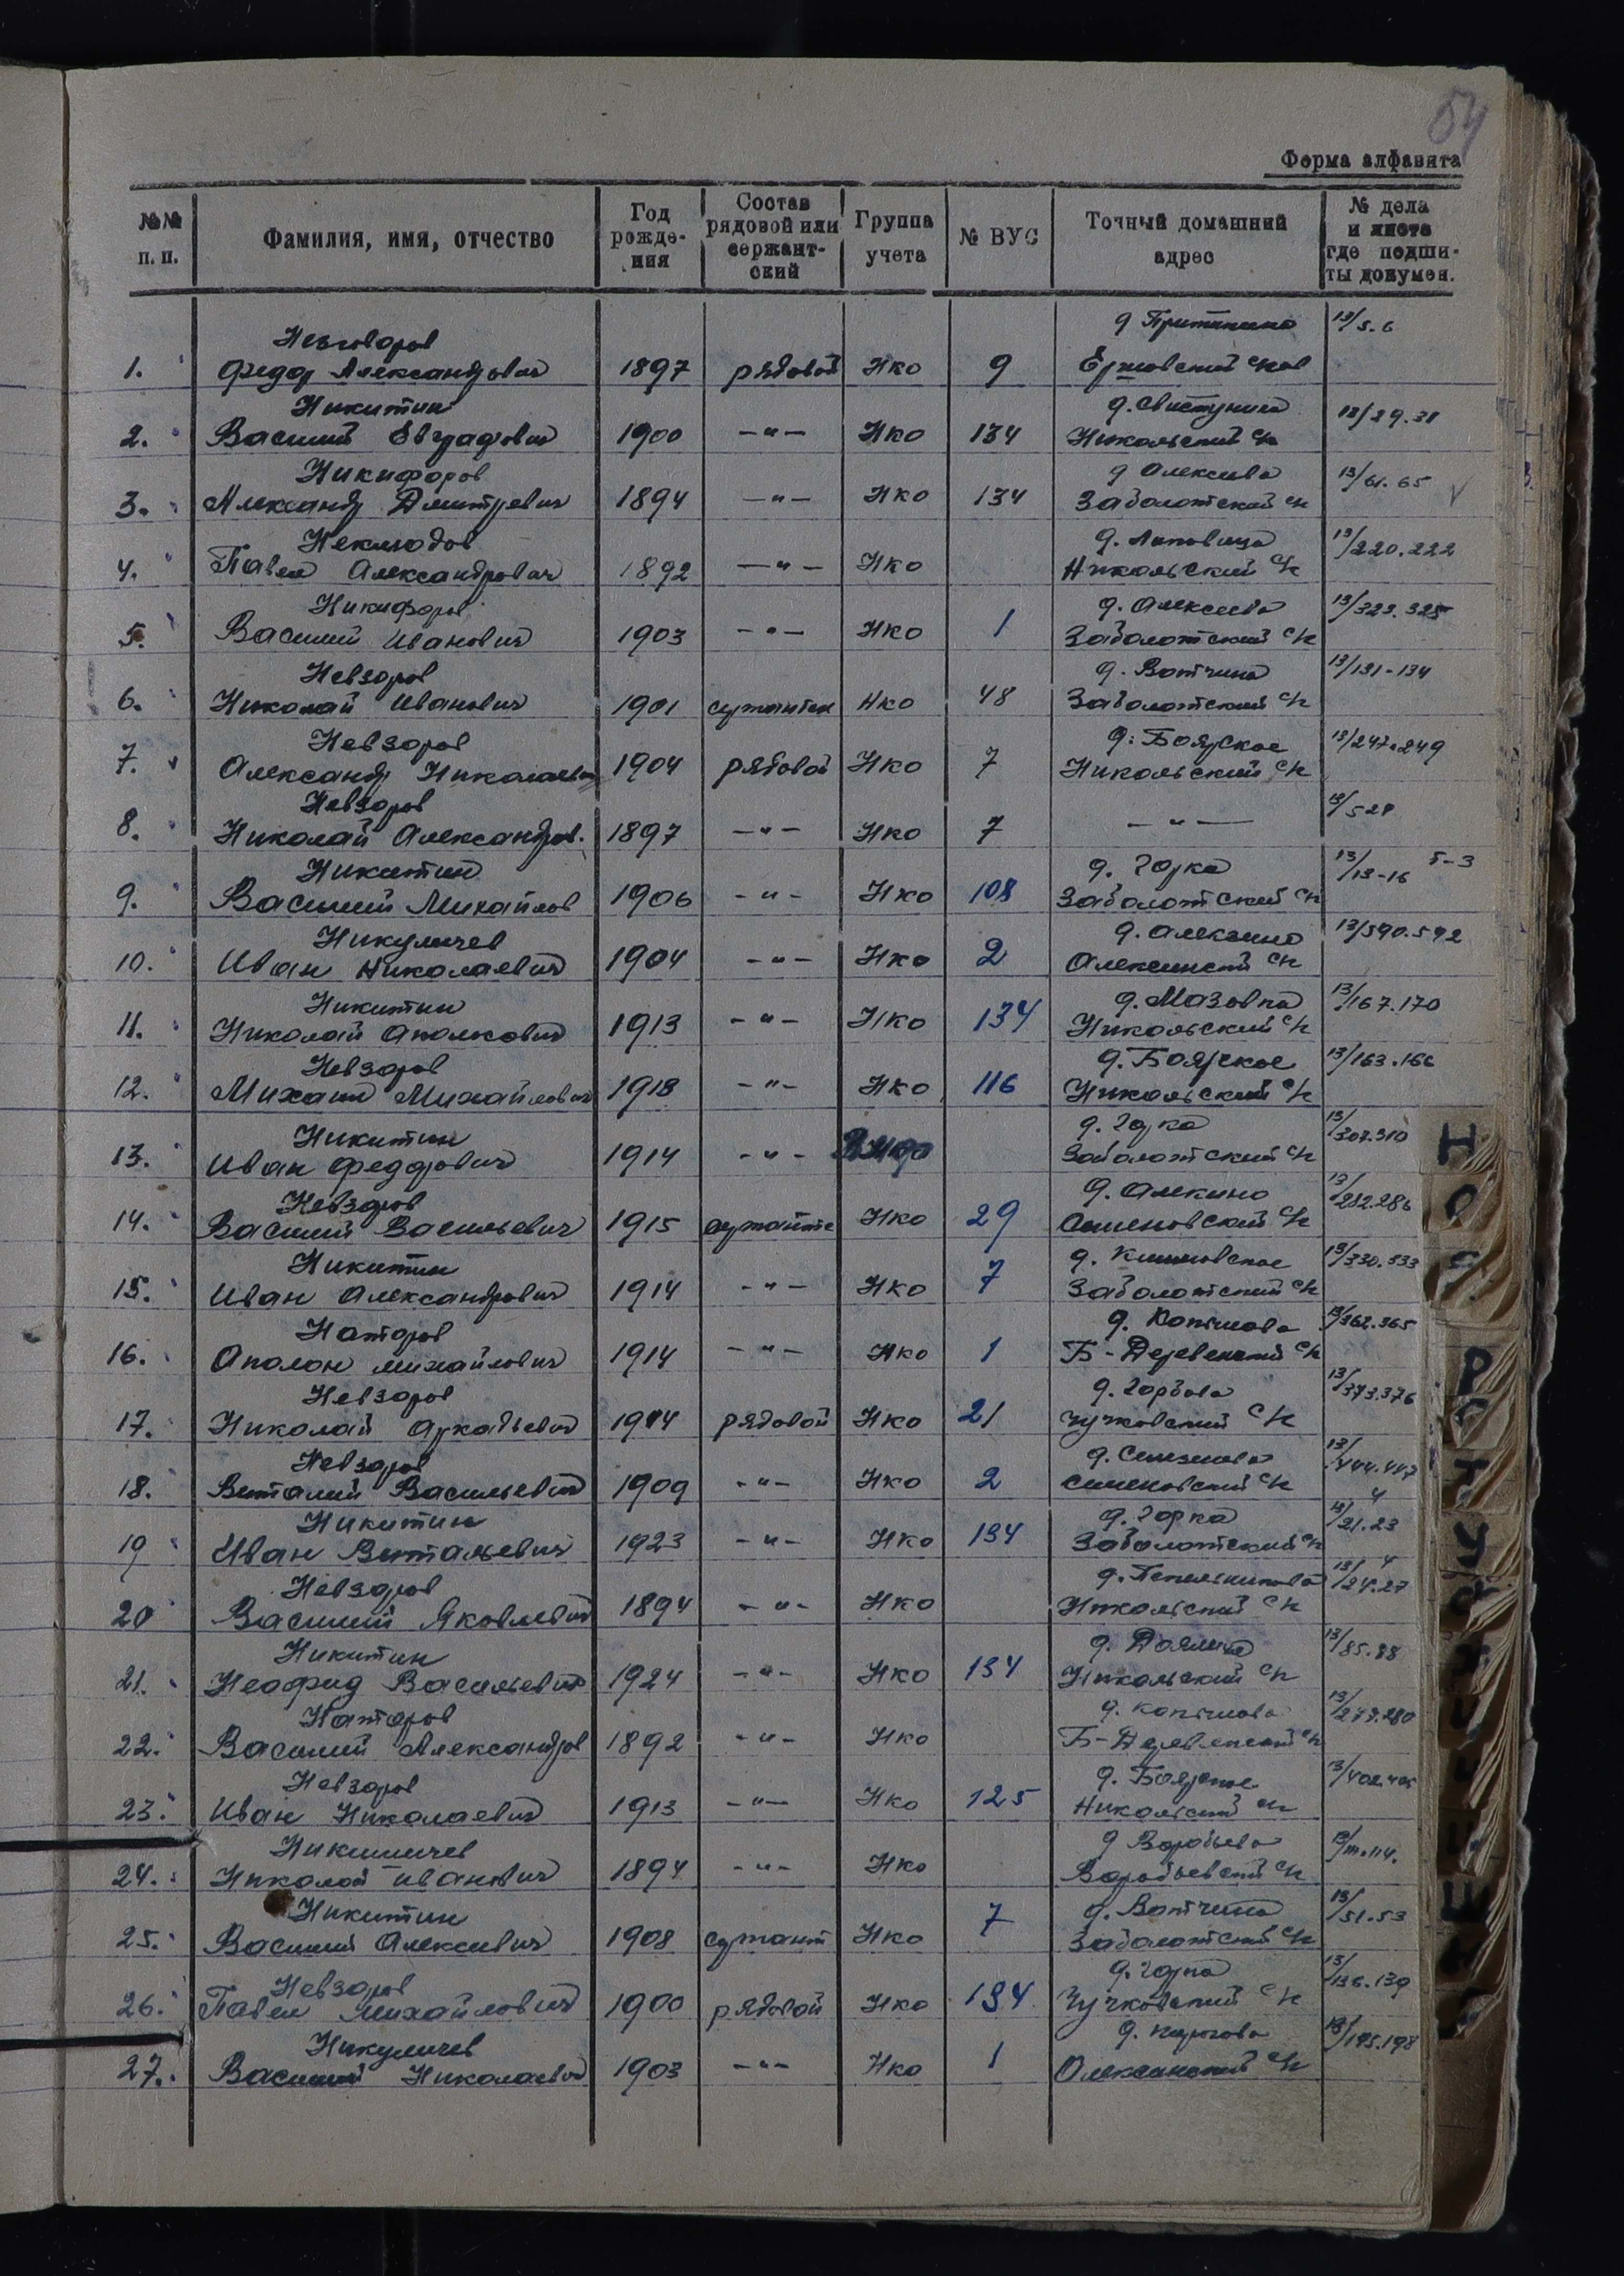 54
Форма алфавита
№№ п. п.
Фамилия, имя, отчество
Год рожде-ния
Состав рядовой или сержант-ский
Группа учета
№ ВУС
Точный домашний адрес
№ дела и листа где подши-ты докумен.
Невзоров д.
13/5.6
1. Федор Александрович 1897 рядовой Нко 9
Никитин 13/29.31
2. Василий Евграфович 1900 -"- Нко 134 Никольский с/с
Никифоров д Алексиева 13/61.65
3. Александр Дмитревич 1894 -"- Нко 134 Заболотский с/с
Неклюдов д. Липовица 13/220.222
4. Павел Александрович 1892 -"- Нко Никольский с/с
Никифоров д. Алексиева 13/323.325
5. Василий Иванович 1903 -"- Нко 1 Заболотский с/с
Невзоров д. Вотчина 13/131-134
6. Николай Иванович 1901 Нко 48 Заболотский с/с
Невзоров д. Боярское 13/247.249
7. Александр Николаевич 1904 рядовой Нко 7 Никольский с/с
Невзоров 13/528
8. Николай Александров. 1897 -"- Нко 7 -"-
Никитин д. Горка 13/13-16 5-3
9. Василий Михайлов 1906 -"- Нко 108 Заболотский с/с
Никуличев д. Алексино 13/590.592
10. Иван Николаевич 1904 -"- Нко 2 Алексинский с/с
Никитин д. Мазовка 13/167.170
11. Николай Аполонович 1913 -"- Нко 134 Никольский с/с
Невзоров д. Боярское 13/163.166
12. Михаил Михайлович 1918 -"- Нко 116 Никольский с/с
Никитин д. Горка 13/307.310
13. Иван Федорович 1914 -"- Заболотский с/с
Невзоров д. Алекино 13/282.286
14. Василий Васильевич 1915 Нко 29 Семеновский с/с
Никитин 13/330.333
15. Иван Александрович 1914 -"- Нко 7 Заболотский с/с
Наторов д. Копылово 13/362.365
16. Аполон Михайлович 1914 -"- Нко 1 Б-Деревенский с/с
Невзоров д. Горбово 13/373.376
17. Николай Аркадьевич 1914 рядовой Нко 21 Чучковский с/с
Невзоров 13/444.447
18. Виталий Васильевич 1909 -"- Нко 2 Семеновский с/с
Никитин д. Горка 13/21.23
19 Иван Витальевич 1923 -"- Нко 134 Заболотский с/с
Невзоров 13/24.27
20 Василий Яковлевич 1894 -"- Нко Никольский с/с
Никитин 13/85.88
21. Василевич 1924 -"- Нко 134 Никольский с/с
Наторов д. Копылово 13/279.280
22. Василий Александров 1892 -"- Нко Б-Деревенский с/с
Невзоров д. Боярское
23. Иван Николаевич 1913 -"- Нко 125 Никольский с/с
д Воробьево
24. Николай Иванович 1894 -"- Нко Воробьевский с/с
Никитин д. Вотчина 13/51.53
25. Василий Алексеевич 1908 сержант Нко 7 Заболотский с/с
Невзоров д. Горка 13/136.139
26. Павел Михайлович 1900 рядовой Нко 134 Чучковский с/с
Никуличев 13/195.198
27. Василий Николаевич 1903 -"- Нко 1 Олексинский с/с